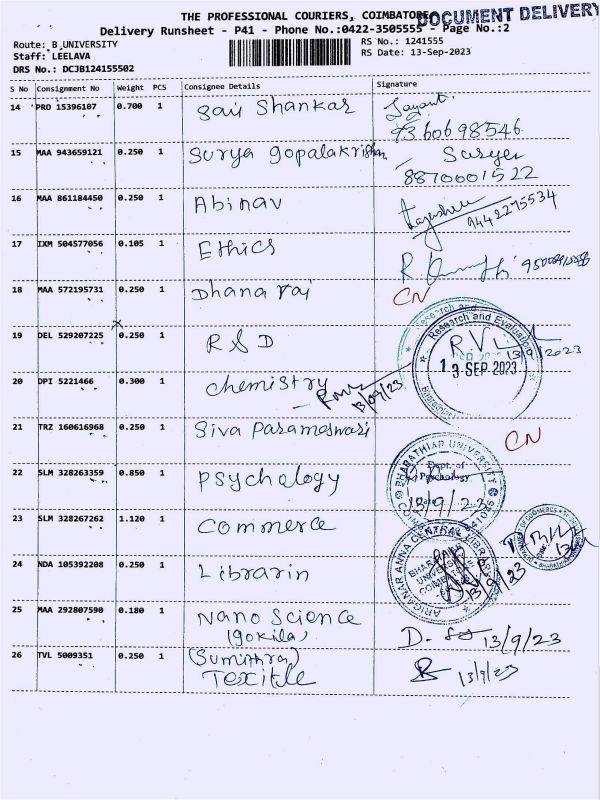 THE PROFESSIONAL COURIERS, COIMBATORE
DOCUMENT DELIVERY
Delivery Runsheet - P41 - Phone No.:0422-3505555 - Page No.:2
Route: B UNIVERSITY
RS No.: 1241555
Staff: LEELAVA
RS Date: 13-Sep-2023
DRS No.: DCJB124155502
S No Consignment No Weight PCS Consignee Details Signature
14 PRO 15396107 0.700 1 Sai Shankar
15 MAA 943659121 0.250 1 Surya gopalakrishnan
8870001522
16 MAA 861184450 0.250 1 Abinav 9442275534
17 IXM 504577056 0.105 1 Ethics
18 MAA 572195731 0.250 1 Dhana raj CN
19 DEL 529207225 0.250 1 R & D
Research and Evaluation
13/9/2023
13 SEP 2023
20 DPI 5221466 0.300 1 chemistry 13/09/23
21 TRZ 160616968 0.250 1 Siva Parameswari CN
22 SLM 328263359 0.850 1 Psychology
BHARATHIAR UNIVERSITY
Dept. of
Psychology
13/9/23
23 SLM 328267262 1.120 1 Commerce
24 NDA 105392208 0.250 1 Librarin
ARIGNAR ANNA CENTRAL LIBRARY
BHARATHIAR
UNIVERSITY
13/9/23
25 MAA 292807590 0.180 1 Nano Science
(gokila) 13/9/23
26 TVL 5009351 0.250 1 (Sumithra)
Texitle 13/9/23